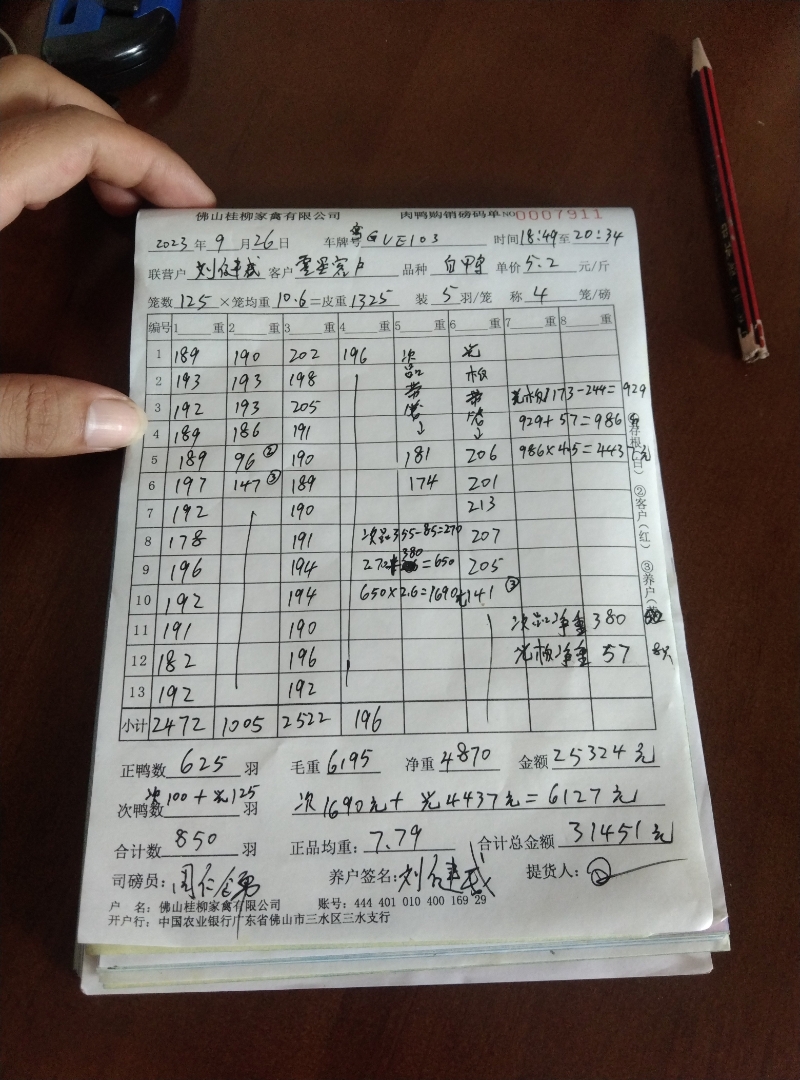 佛山桂柳家禽有限公司 肉鸭购销磅码单 NO 0007911
2023年9月26日 车牌号 粤GVE103 时间18:49至20:34
联营户 客户 品种 白甲 单价5.2元/斤
笼数125×笼均重10.6=皮重1325 装5羽/笼 称4笼/磅
编号 1 重 2 重 3 重 4 重 5 重 6 重 7 重 8 重
1 189 190 202 196 次 光
2 193 193 198 品 板
3 192 193 205 带 带 光板1173-244=929
4 189 186 191 929+57=986
5 189 96② 190 181 206 986×4.5=4437元
6 197 147③ 189 174 201
7 192 190 213
8 178 191 次品355-85=270 207
9 196 194 270+380=650 205
10 192 194 650×2.6=1690元 141③
11 191 190 次品净重380
12 182 196 光板净重57
13 192 192
小计 2472 1005 2522 196
正鸭数625羽 毛重6195 净重4870 金额25324元
次鸭数 次100+光125羽 次1690元+光4437元=6127元
合计数850羽 正品均重:7.79 合计总金额31451元
司磅员: 养户签名: 提货人:
户 名:佛山桂柳家禽有限公司 账号:444 401 010 400 169 29
开户行:中国农业银行广东省佛山市三水区三水支行
②客户(红)
③养户